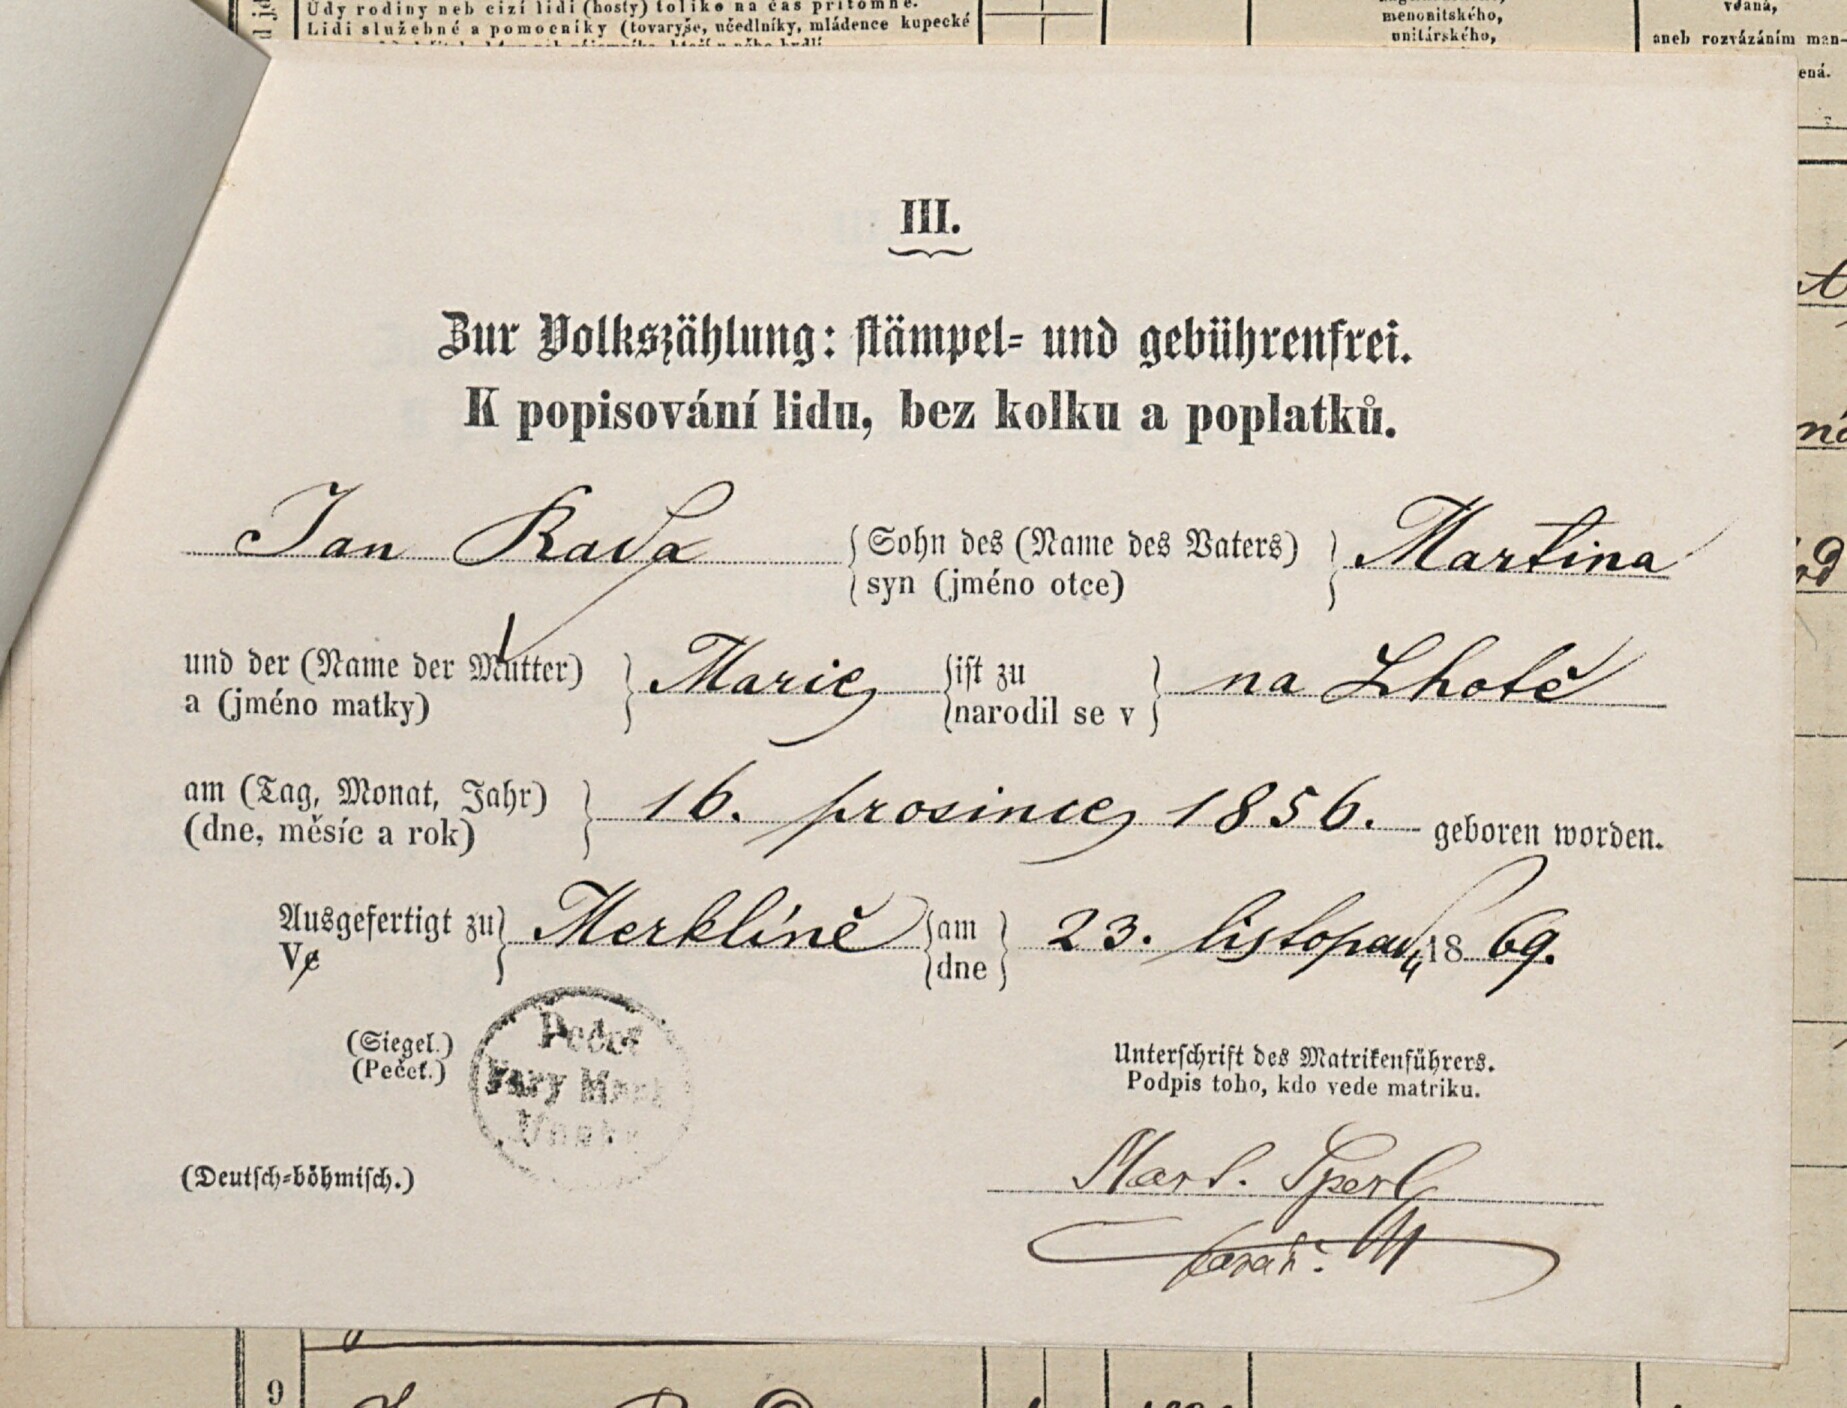 Údy rodiny neb cizí lidi (hosty) toliko na čas přítomné.
Lidi služebné a pomocníky (tovaryše, učedlníky, mládence kupecké
menonitského,
unitárského,
vdaná,
aneb rozvázáním man-
ená.
III.
Zur Volkszählung: stämpel- und gebührenfrei.
K popisování lidu, bez kolku a poplatků.
Jan Rada
Sohn des (Name des Vaters)
syn (jméno otce)
Martina
und der (Name der Mutter)
a (jméno matky)
Marie
ist zu
narodil se v
na Lhotě
am (Tag, Monat, Jahr)
(dne, měsíc a rok)
16. prosince 1856.
geboren worden.
Ausgefertigt zu
V
Merklíně
am
dne
23. listopadu 1869.
(Siegel.)
(Pečeť.)
Pečeť
Fary Merk
Unterschrift des Matrikenführers.
Podpis toho, kdo vede matriku.
Mart. Sperl
farář.
(Deutsch-böhmisch.)
9